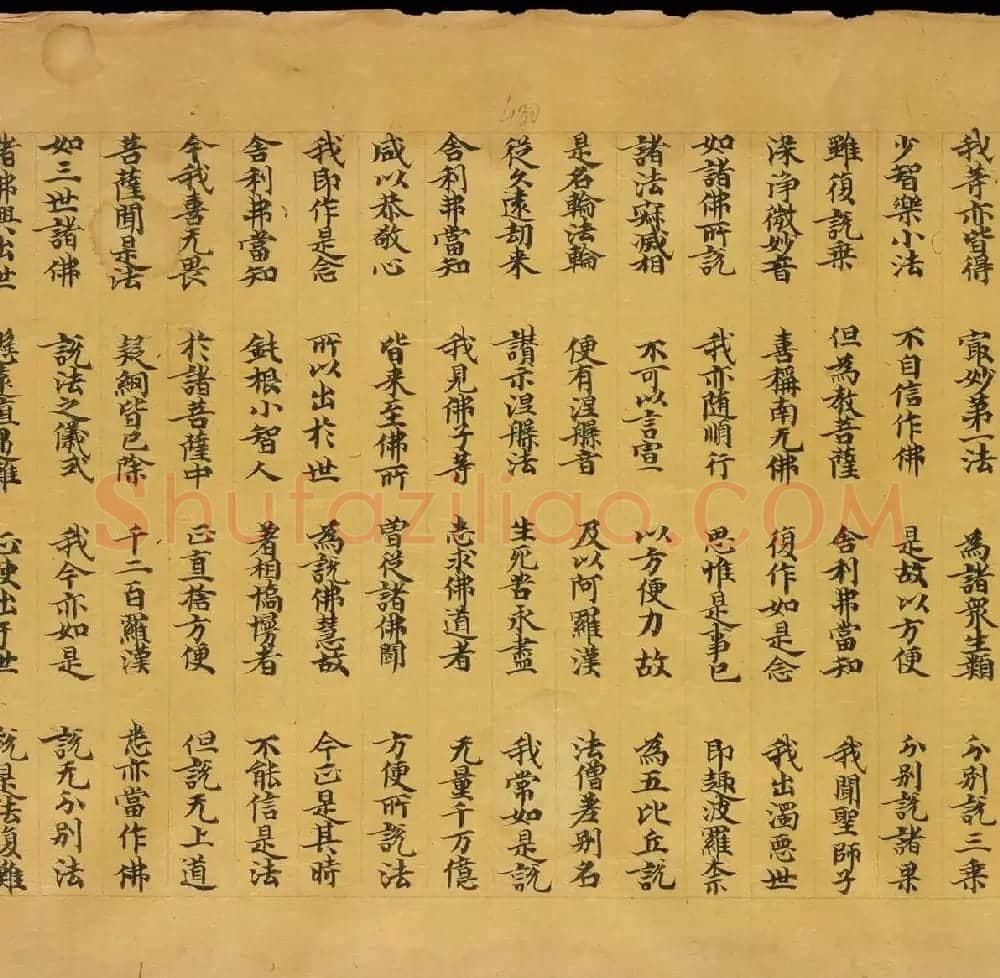 我等亦皆得 㝡妙第一法 為諸衆生類 分別說三乗
少智樂小法 不自信作佛 是故以方便 分別說諸果
雖復說乗 但為教菩薩 舍利弗當知 我聞聖師子
深淨微妙音 善稱南无佛 復作如是念 我出濁惡世
如諸佛所說 我亦随順行 思惟是事已 即趣波羅奈
諸法寂滅相 不可以言宣 以方便力故 為五比丘說
是名輪法輪 便有涅槃音 及以阿羅漢 法僧差別名
從久遠劫来 讃示涅槃法 生死苦永盡 我常如是說
舍利弗當知 我見佛子等 志求佛道者 无量千万億
咸以恭敬心 皆来至佛所 曽從諸佛聞 方便所說法
我即作是念 所以出於世 為說佛慧故 今正是其時
舍利弗當知 鈍根小智人 著相憍慢者 不能信是法
今我喜无畏 於諸菩薩中 正直捨方便 但說无上道
菩薩聞是法 疑網皆已除 千二百羅漢 悉亦當作佛
如三世諸佛 說法之儀式 我今亦如是 說无分別法
諸佛興出世 懸遠值遇難 正使出于世 說是法復難
480
Shufaziliao.COM